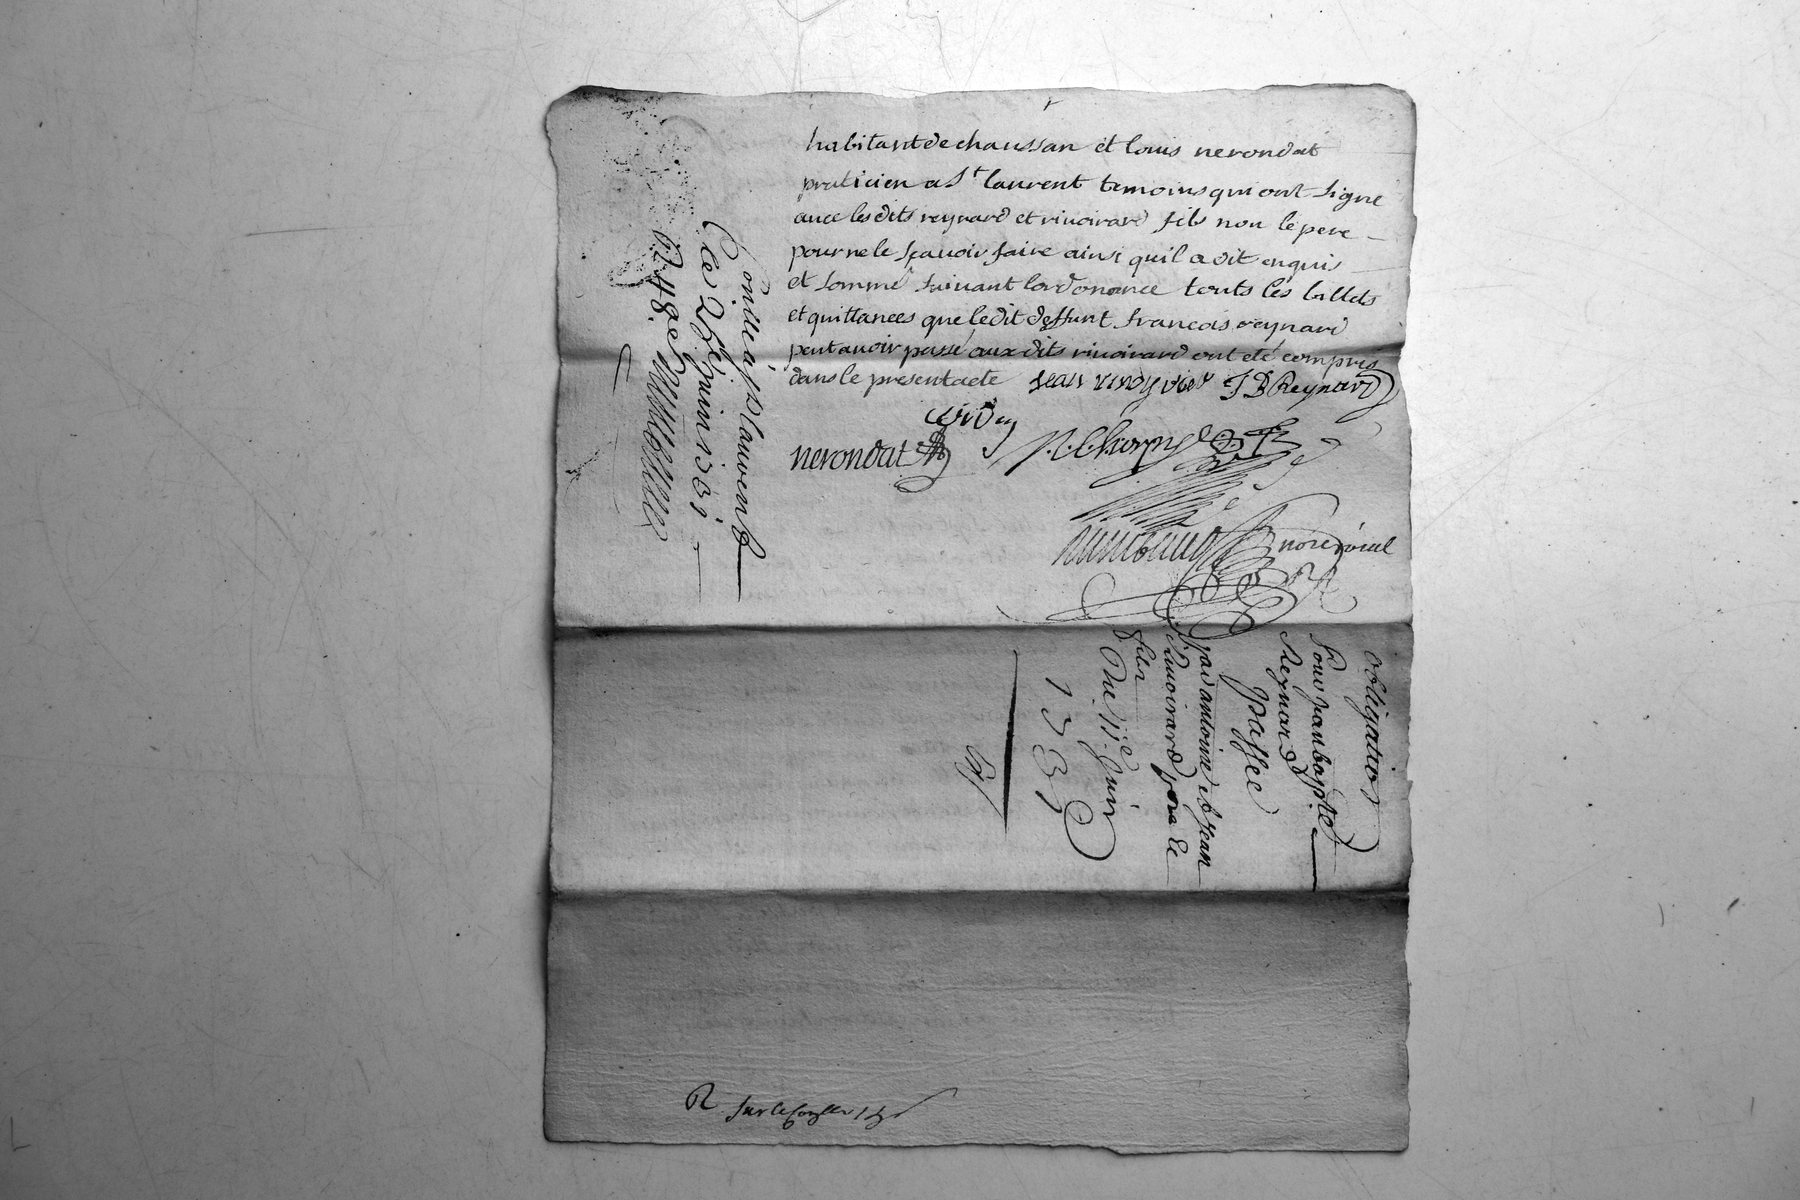 habitant de chaussan et louis nerondat
praticien a St laurent temoins qui ont signe
avec lesdits reynard et rivoirard fils non le pere
pour ne le sçavoir faire ainsi quil a dit enquis
et sommé suivant lordonance touts les billets
et quittances que ledit deffunt francois reynard
peut avoir passé aux dits rivoirard ont eté compris
dans le present acte jean J B Reynard
nerondat
notre roial
Conllé a st laurent
Ce 21e juin 1737
R 48s
obligation
Pour jean bapte
Reynard
passée
par antoine et jean
Rivoirard pere &
fils
Du 11e juin
1737
R sur le